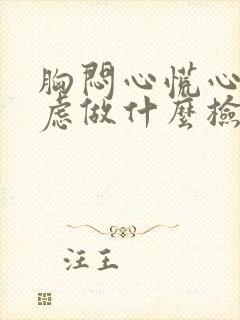 胸悶心慌心
虑做什麼檢
汪王